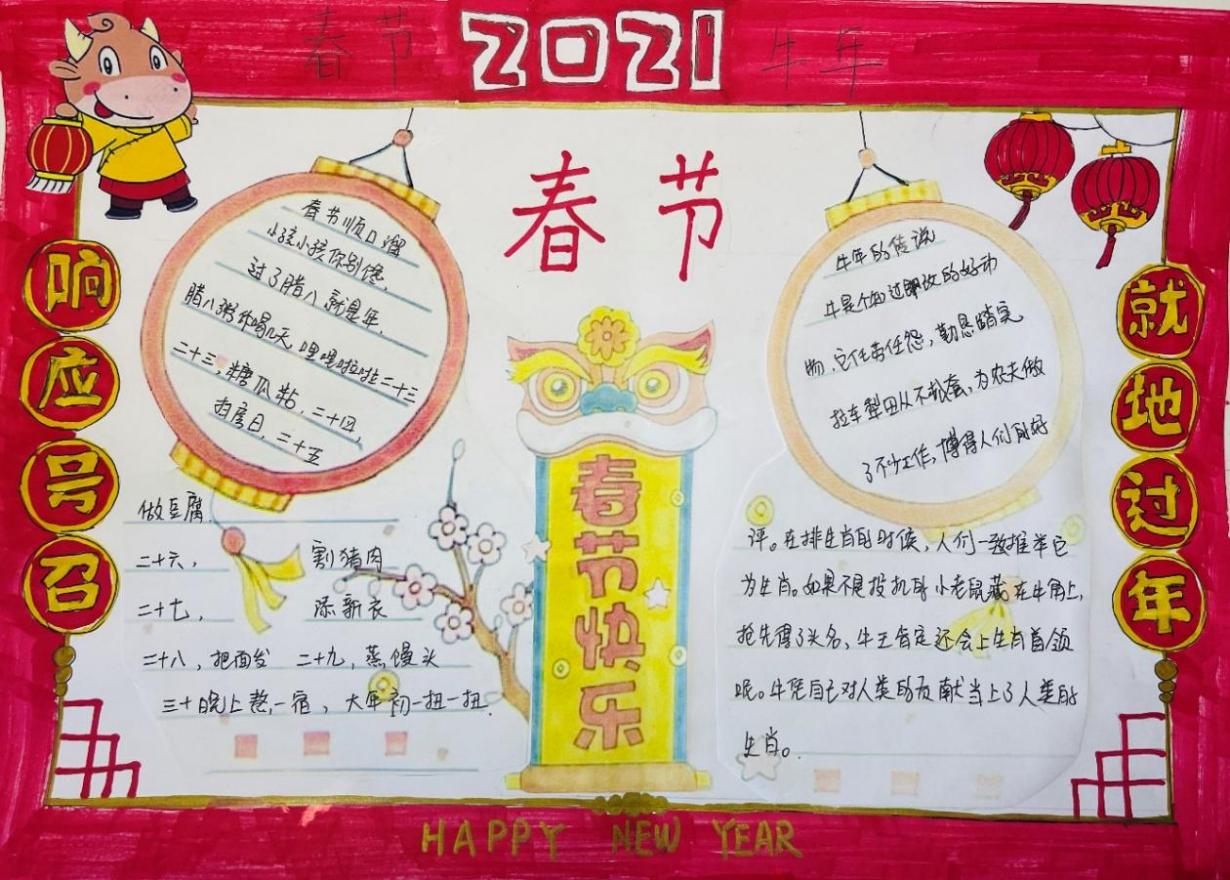 春节 2021 牛年
春节
响应号召
春节顺口溜
小孩小孩你别馋,
过了腊八就是年,
腊八粥你喝几天,哩哩啦啦二十三
二十三,糖瓜粘,二十四,
扫房日,二十五
做豆腐
二十六, 割猪肉
二十七, 添新衣
二十八,把面发 二十九,蒸馒头
三十晚上熬一宿,大年初一扭一扭.
春节快乐
牛年的传说
牛是个知过即改的好动
物,它任劳任怨,勤恳踏实
拉车犁田从不耽套,为农夫做
了不少工作,博得人们的好
评。在排生肖的时候,人们一致推举它
为生肖。如果不是投机的小老鼠藏在牛角上,
抢先得了头名,牛王肯定还会上生肖首领
呢。牛凭自己对人类的贡献当上了人类的
生肖。
就地过年
HAPPY NEW YEAR